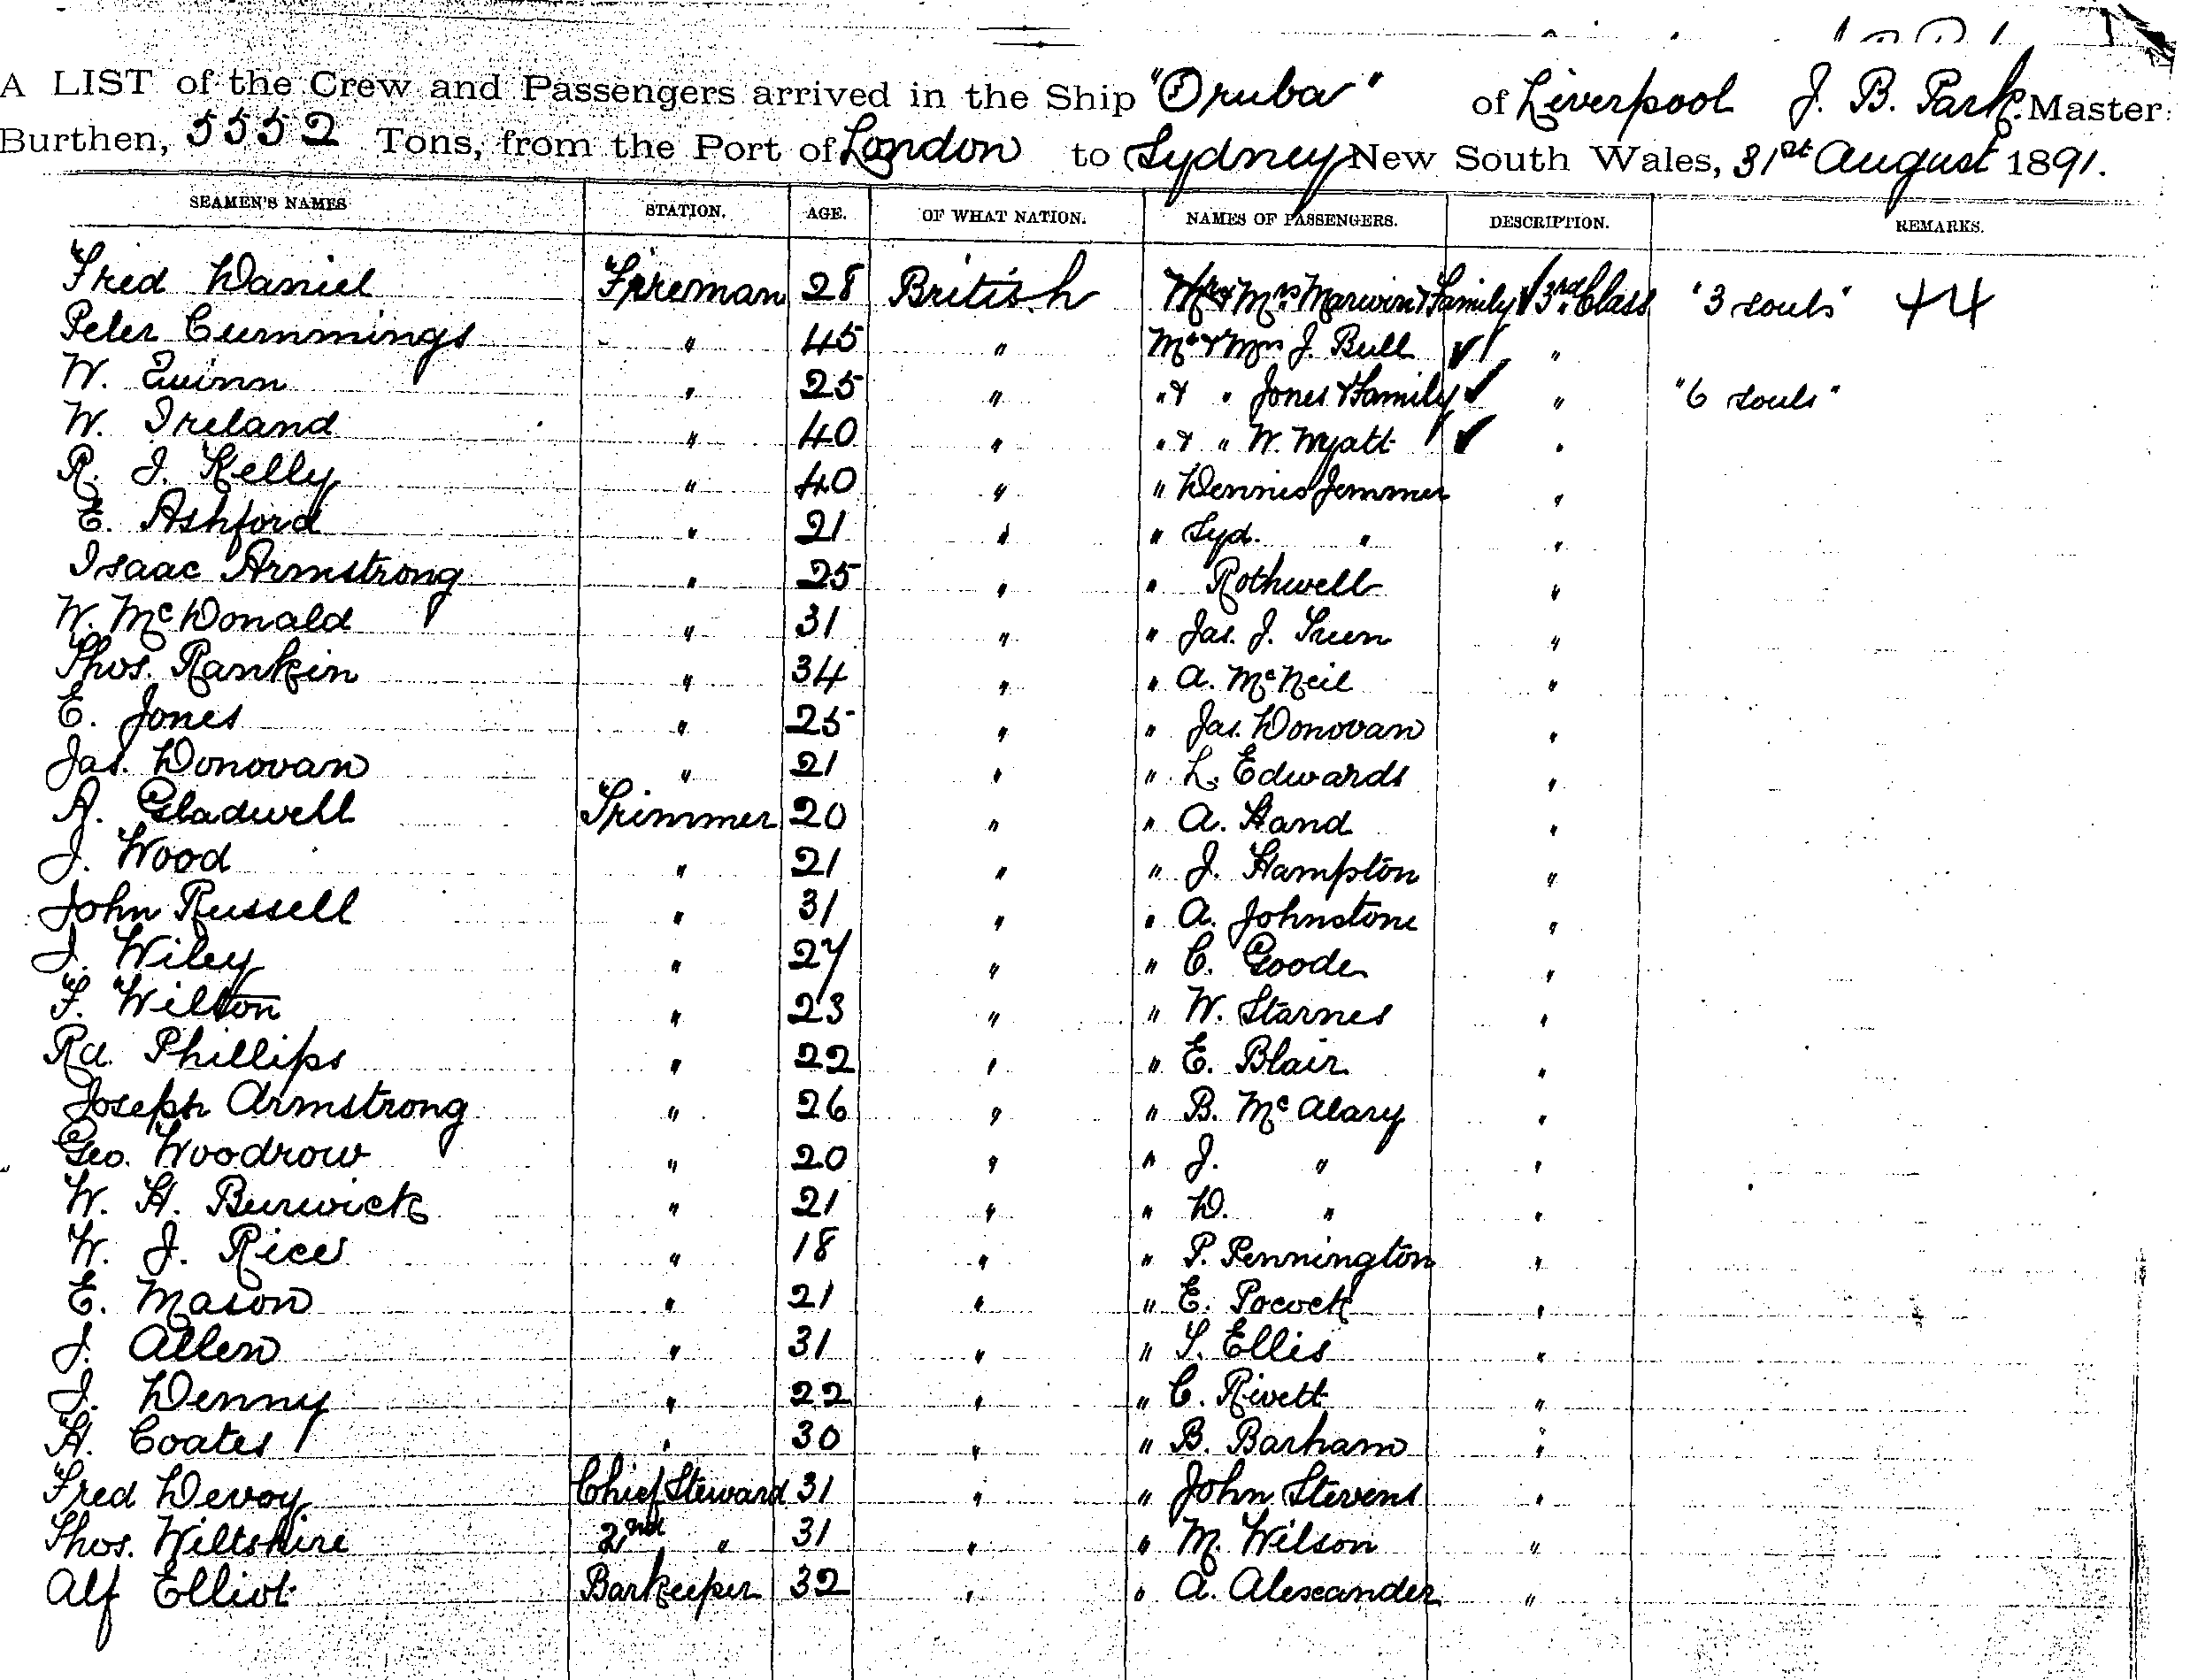 A LIST of the Crew and Passengers arrived in the Ship "Oruba" of Liverpool J. B. Park. Master:
Burthen, 5552 Tons, from the Port of London to Sydney New South Wales, 31st August 1891.
SEAMEN'S NAMES STATION. AGE. OF WHAT NATION. NAMES OF PASSENGERS. DESCRIPTION. REMARKS.
Fred Daniel Fireman 28 British Mr & Mrs Marwin & Family 3rd Class "3 souls" +4
Peter Cummings " 45 " Mr & Mrs J. Bull "
W. Quinn " 25 " " & " Jones & Family " "6 souls"
W. Ireland " 40 " " & " W. Wyatt "
R. J. Kelly " 40 " " Dennis Jemmer "
E. Ashford " 21 " " Syd. " "
Isaac Armstrong " 25 " " Rothwell "
W. McDonald " 31 " " Jas. J. "
Thos. Rankin " 34 " " A. McNeil "
E. Jones " 25 " " Jas. Donovan "
Jas. Donovan " 21 " " L. Edwards "
A. Gladwell Trimmer 20 " " A. Hand "
J. Wood " 21 " " J. Hampton "
John Russell " 31 " " A. Johnstone "
J. Wiley " 27 " " C. Goode "
F. Wilton " 23 " " W. Starnes "
Rd. Phillips " 22 " " E. Blair "
Joseph Armstrong " 26 " " B. McAlary "
Geo. Woodrow " 20 " " J. " "
W. H. Burwick " 21 " " D. " "
W. J. Rice " 18 " " P. Pennington "
E. Mason " 21 " " E. Pocock "
J. Allen " 31 " " S. Ellis "
J. Denny " 22 " " C. Rivett "
H. Coates " 30 " " B. Barham "
Fred Devoy Chief Steward 31 " " John Stevens "
Thos. Wiltshire 2nd " 31 " " M. Wilson "
Alf Elliot Barkeeper 32 " " A. Alexander "